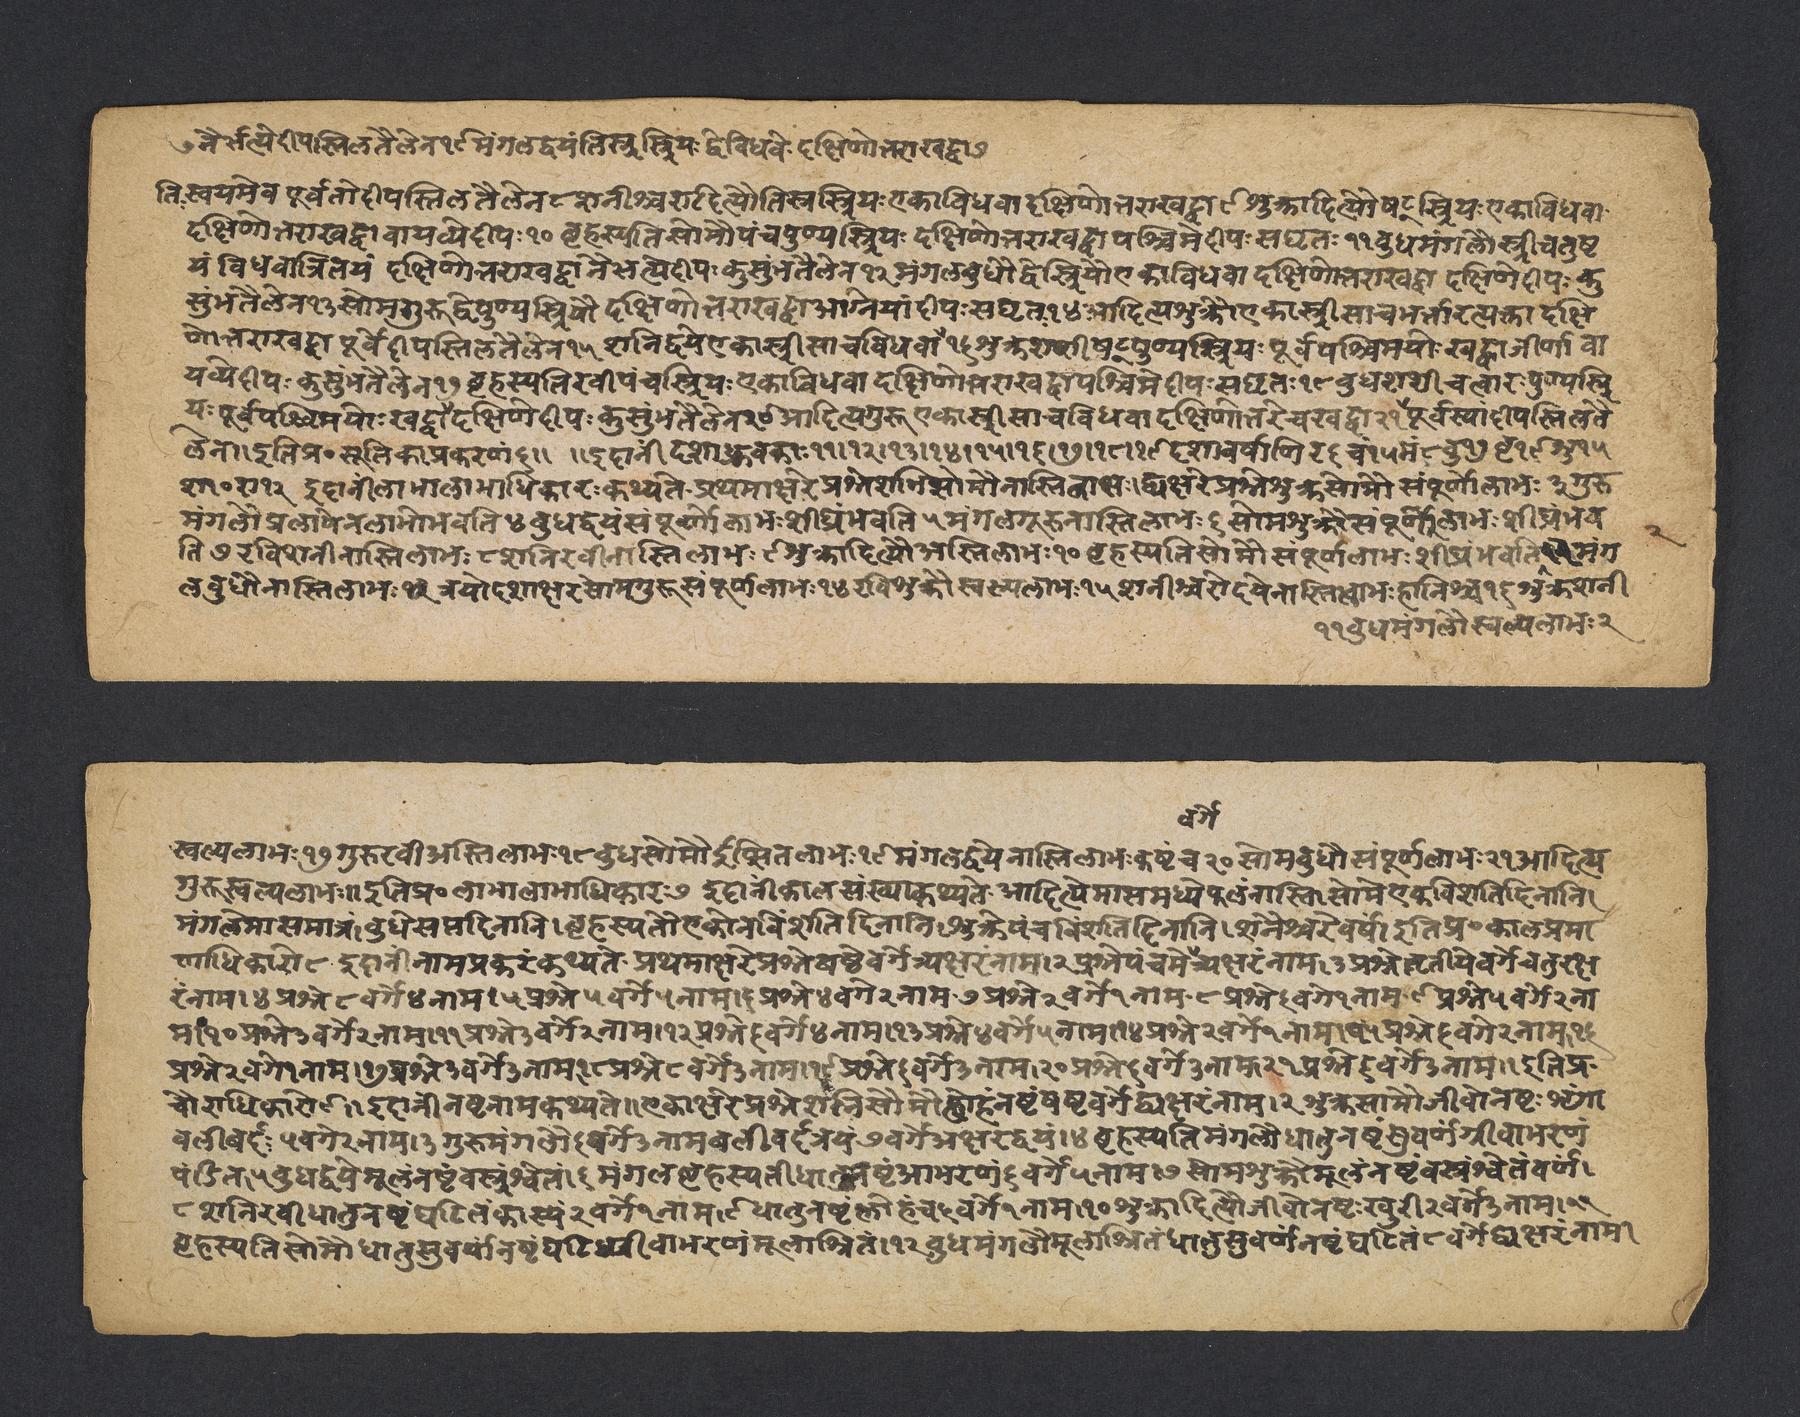 ७ नैर्ऋत्ये दीपस्तिलतैलेन १९ मंगलद्वयं तिस्रस्त्रियः द्वे विधवे दक्षिणोत्तराखट्वा ७
ति स्वयमेव पूर्वतो दीपस्तिलतैलेन ८ शनीश्वरादित्यौ तिस्रस्त्रियः एका विधवा दक्षिणोत्तराखट्वा ९ शुक्रादित्यो षट्स्त्रियः एका विधवा
दक्षिणोत्तराखट्वा वायव्ये दीपः १० बृहस्पतिसोमौ पंच पुण्यस्त्रियः दक्षिणोत्तराखट्वा पश्चिमे दीपः सघृतः ११ बुधमंगलौ स्त्रीचतुष्ट
यं विधवात्रितयं दक्षिणोत्तराखट्वा नैऋत्ये दीपः कुसुंभतैलेन १२ मंगलबुधौ द्वे स्त्रियौ एका विधवा दक्षिणोत्तराखट्वा दक्षिणे दीपः कु
सुंभतैलेन १३ सोमगुरू द्वे पुण्यस्त्रियौ दक्षिणोत्तराखट्वा आग्नेयां दीपः सघृतः १४ आदित्यशुक्रौ एका स्त्री सा च भर्त्तारत्यक्ता दक्षि
णोत्तराखट्वा पूर्वे दीपस्तिलतैलेन १५ शनिद्वये एका स्त्री सा च विधवा १६ शुक्रशशी षट्पुण्यस्त्रियः पूर्वपश्चिमयोः खट्वा जीर्णा वा
यव्ये दीपः कुसुंभतैलेन १७ बृहस्पतिरवी पंचस्त्रियः एका विधवा दक्षिणोत्तराखट्वा पश्चिमे दीपः सघृतः १८ बुधशशी चत्वारः पुण्यस्त्रि
यः पूर्वपश्चिमयोः खट्वा दक्षिणे दीपः कुसुंभतैलेन २० आदित्यगुरू एका स्त्री सा च विधवा दक्षिणोत्तरे च खट्वा २१ पूर्वस्यां दीपस्तिलतै
लेन॥ इति प्र॰ सूतिकाप्रकरणं ६॥ ॥ इदानीं दशा ११।१२।१३।१४।१५।१६।१७।१८।१९ दशावर्षाणि र ६ चं १५ मं ८ बु १७ बृ १९ शु १५
श १० रा १२ इदानीं लाभालाभाधिकारः कथ्यते प्रथमाक्षरे प्रश्ने शनिसोमौ नास्ति लाभः। द्व्यक्षरे प्रश्ने शुक्रसोमौ संपूर्णो लाभः ३ गुरु
मंगलौ प्रलापेन लाभो भवति ४ बुधद्वयं संपूर्णो लाभः शीघ्रं भवति ५ मंगलगुरु नास्ति लाभः ६ सोमशुक्रौ संपूर्णो लाभः शीघ्रं भव
ति ७ रविशनी नास्ति लाभः ८ शनिरवी नास्ति लाभः ९ शुक्रादित्यौ अस्ति लाभः १० बृहस्पतिसोमौ संपूर्णलाभः शीघ्रं भवति मंग
२
लबुधौ नास्ति लाभः १३ त्रयोदशाक्षर सोमगुरू संपूर्णलाभः १४ रविशुक्रौ स्वल्पलाभः १५ शनीश्वरोदये नास्ति लाभः हानिश्च १६ शुक्रशनी
११ बुधमंगलौ स्वल्पलाभः २
वर्गे
स्वल्पलाभः १७ गुरुरवी अस्ति लाभः १८ बुधसोमौ ईप्सितलाभः १९ मंगलद्वये नास्ति लाभः कष्टं च २० सोमबुधौ संपूर्णलाभः २१ आदित्य
गुरू स्वल्पलाभः॥ इति प्र॰ लाभालाभाधिकारः ७ इदानीं कालसंख्या कथ्यते आदित्ये मासमध्ये फलं नास्ति। सोमे एकविंशति दिनानि।
मंगले मासमात्रं। बुधे सप्त दिनानि। बृहस्पतौ एकोनविंशति दिनानि। शुक्रे पंचविंशति दिनानि। शनैश्चरे वर्षं। इति प्र॰ कालप्रमा
णाधिकारो ८ इदानीं नामप्रकरं कथ्यते प्रथमाक्षरे प्रश्ने षष्ठे वर्गे त्र्यक्षरं नाम। २ प्रश्ने पंचमे त्र्यक्षरं नाम। ३ प्रश्ने तृतीये वर्गे चतुरक्ष
रं नाम। ४ प्रश्ने ८ वर्गे ४ नाम। ५ प्रश्ने ५ वर्गे ५ नाम। ६ प्रश्ने ४ वर्गे २ नाम ७ प्रश्ने २ वर्गे १ नाम ८ प्रश्ने ६ वर्गे १ नाम ९ प्रश्ने ५ वर्गे २ ना
म। १० प्रश्ने ३ वर्गे २ नाम। ११ प्रश्ने ३ वर्गे २ नाम। १२ प्रश्ने ६ वर्गे ४ नाम। १३ प्रश्ने ४ वर्गे ५ नाम। १४ प्रश्ने २ वर्गे १ नाम। १५ प्रश्ने ६ वर्गे २ नाम। १६
प्रश्ने २ वर्गे १ नाम। १७ प्रश्ने ३ वर्गे ३ नाम १८ प्रश्ने ८ वर्गे ३ नाम। १९ प्रश्ने ६ वर्गे ३ नाम। २० प्रश्ने ६ वर्गे ३ नाम २१ प्रश्ने ६ वर्गे ३ नाम॥ इति प्र॰
चोराधिकारो ९। इदानीं नष्टनाम कथ्यते॥ एकाक्षरे प्रश्ने शनिसोमौ लोहं नष्टं षष्ट वर्गे द्व्यक्षरं नाम। २ शुक्रसोमौ जीवो नष्टः शृंगा
बलीवर्दः ५ वर्गे २ नाम। ३ गुरुमंगलौ ६ वर्गे ३ नाम बलीवर्दत्रयं ७ वर्गे अक्षरद्वयं। ४ बृहस्पतिमंगलौ धातु नष्टं सुवर्णं ग्रीवाभरणं
५ बुधद्वये मूलं नष्टं वस्त्रं श्वेतं। ६ मंगलबृहस्पती धातु नष्टं आभरणं ६ वर्गे ५ नाम। ७ सोमशुक्रौ मूलं नष्टं वस्त्रं श्वेतं वर्णं।
८ शनिरवी धातु नष्टं घटितं कांस्यं २ वर्गे १ नाम। ९ धातु नष्टं लोहं च ६ वर्गे १ नाम। १० शुक्रादित्यौ जीवो नष्टः खुरी २ वर्गे ३ नाम। ११
बृहस्पतिसोमौ धातु सुवर्णं नष्टं घटि ग्रीवाभरणं मूलाश्रितं। १२ बुधमंगलौ मूलाश्रितं धातु सुवर्णं नष्टं घटितं ८ वर्गे द्व्यक्षरं नाम।